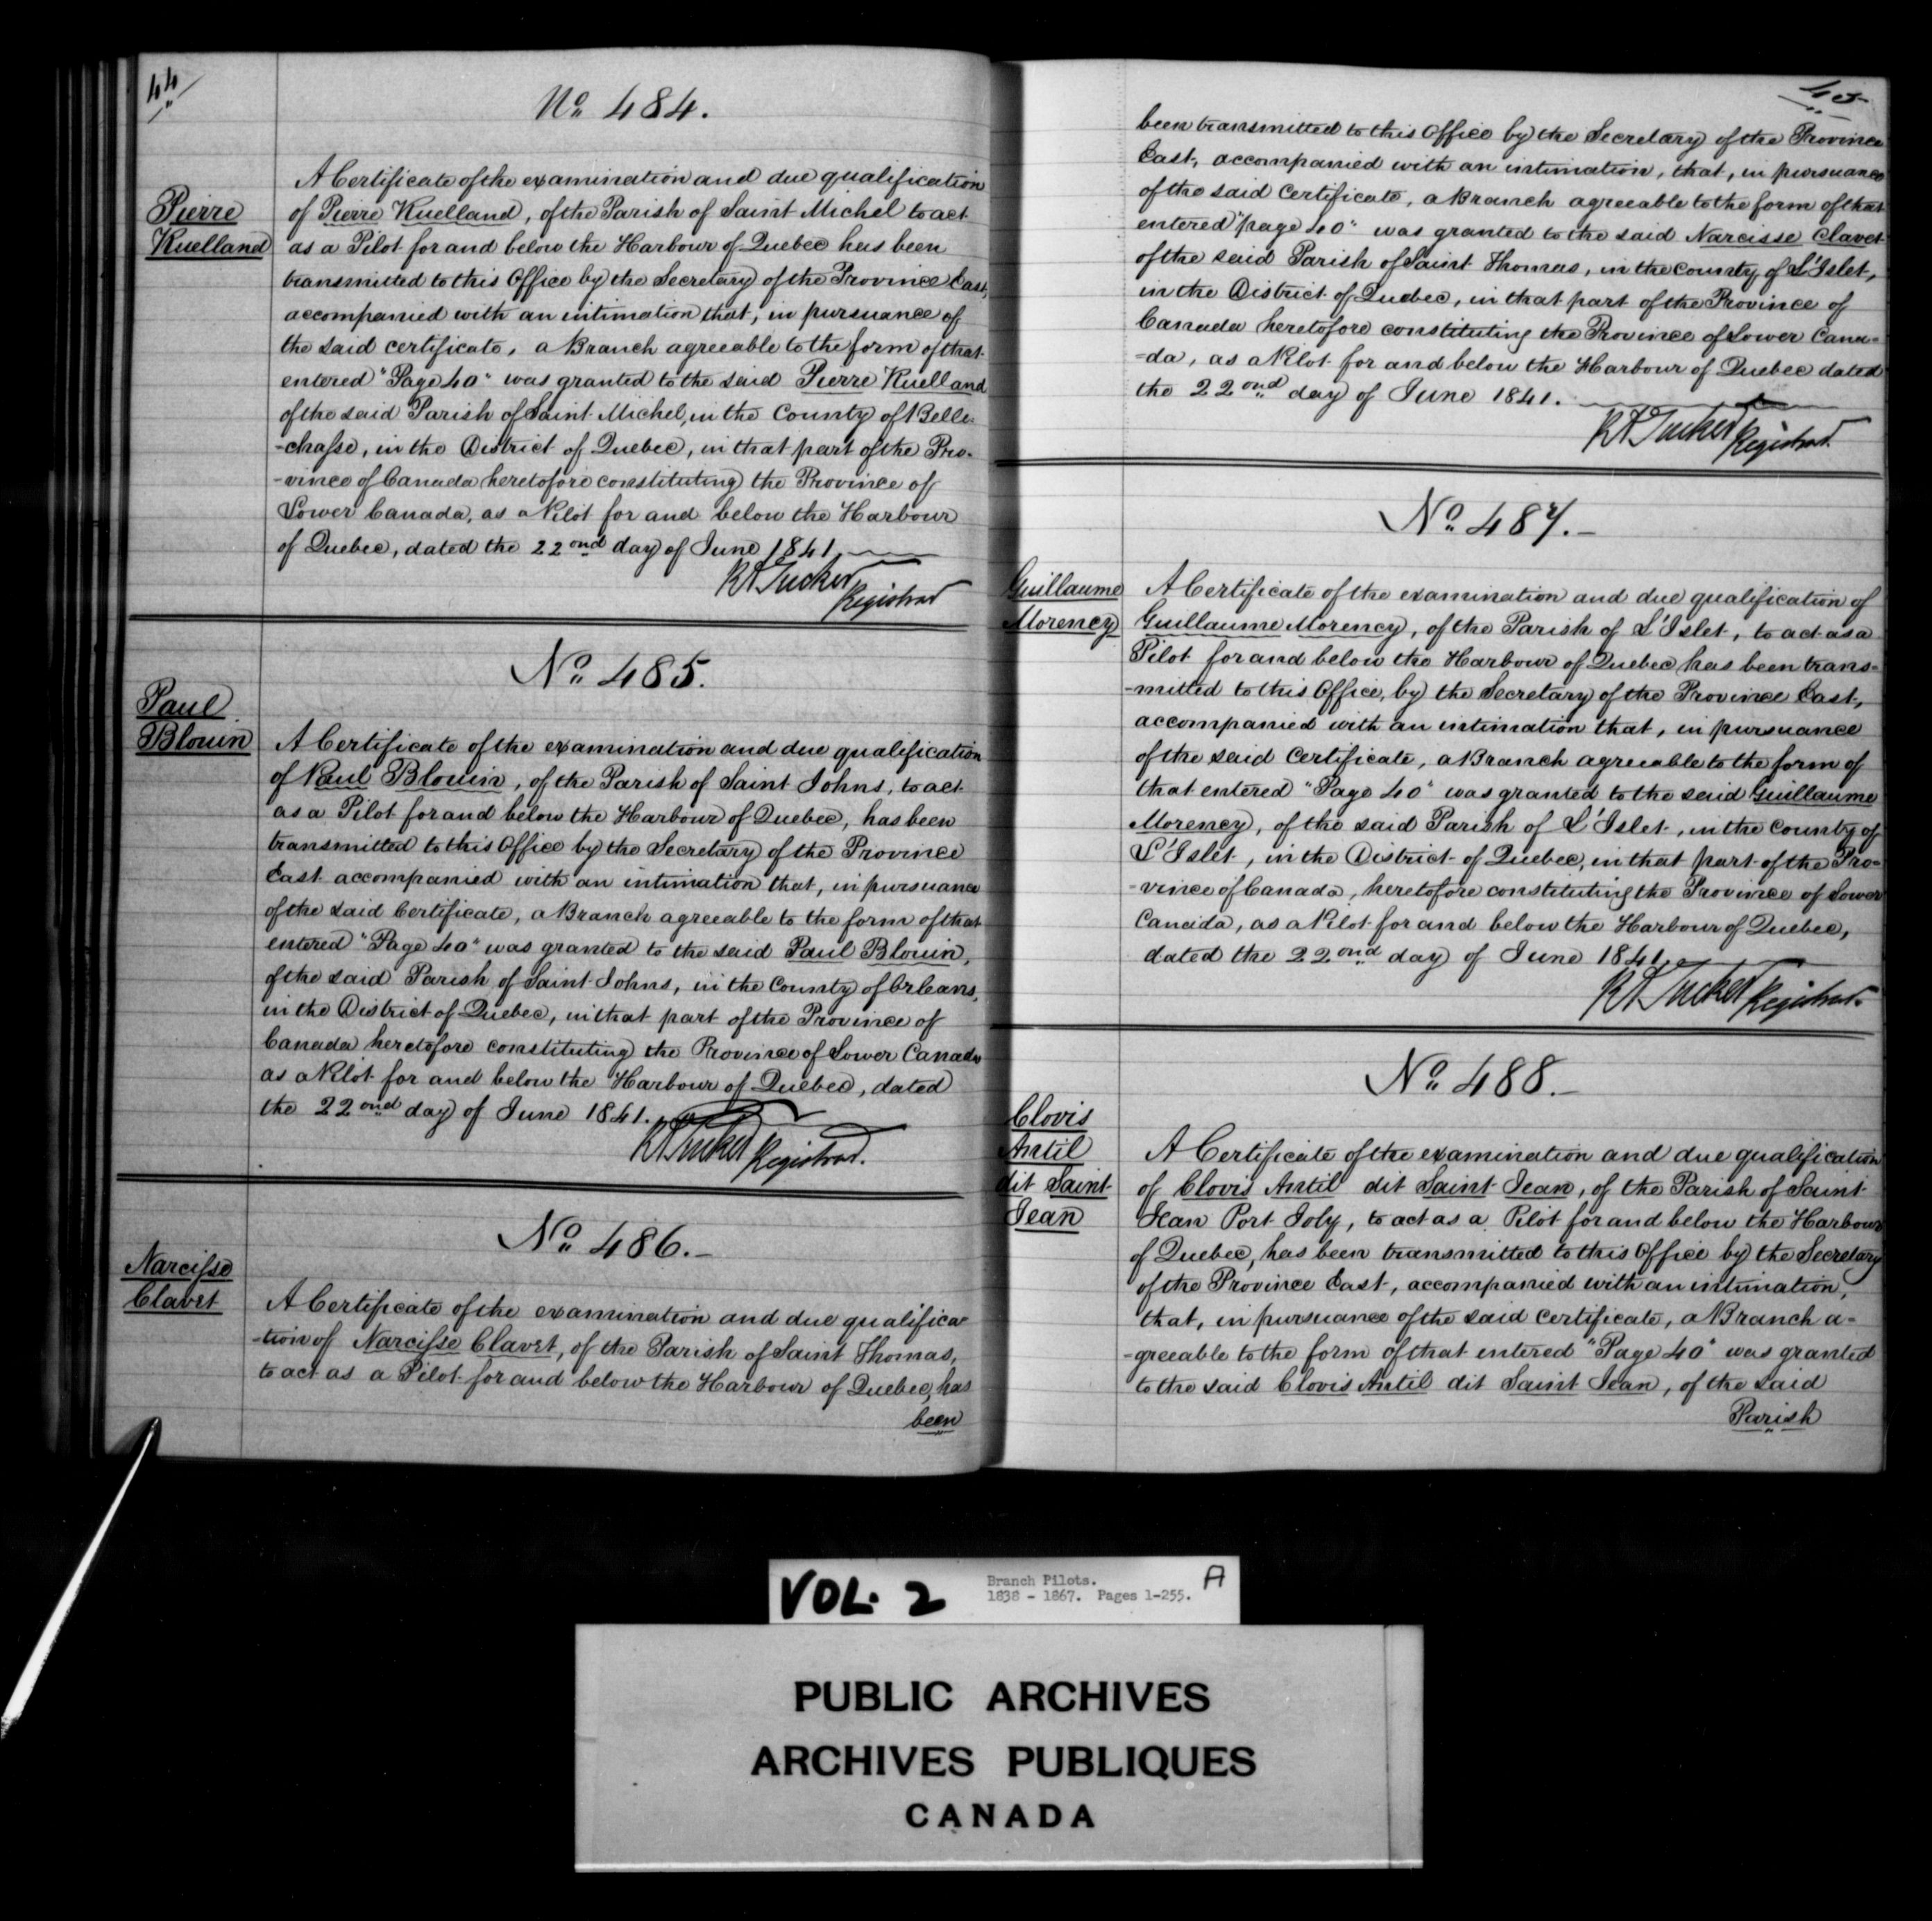 44
No. 484.
Pierre
Kuelland
A Certificate of the examination and due qualification
of Pierre Kuelland, of the Parish of Saint Michel to act
as a Pilot for and below the Harbour of Quebec has been
transmitted to this Office by the Secretary of the Province East,
accompanied with an intimation that, in pursuance of
the said certificate, a Branch agreeable to the form of that
entered "Page 40" was granted to the said Pierre Kuelland
of the said Parish of Saint Michel, in the County of Belle-
-chasse, in the District of Quebec, in that part of the Pro-
-vince of Canada heretofore constituting the Province of
Lower Canada, as a Pilot for and below the Harbour
of Quebec, dated the 22ond day of June 1841.
RA Tucker
Registrar
No. 485.
Paul
Blouin
A Certificate of the examination and due qualification
of Paul Blouin, of the Parish of Saint Johns, to act
as a Pilot for and below the Harbour of Quebec, has been
transmitted to this Office by the Secretary of the Province
East accompanied with an intimation that, in pursuance
of the said Certificate, a Branch agreeable to the form of that
entered "Page 40" was granted to the said Paul Blouin,
of the said Parish of Saint Johns, in the County of Orleans,
in the District of Quebec, in that part of the Province of
Canada heretofore constituting the Province of Lower Canada
as a Pilot for and below the Harbour of Quebec, dated
the 22ond day of June 1841.
RA Tucker Registrar.
No. 486.-
Narcisse
Clavet
A Certificate of the examination and due qualifica-
-tion of Narcisse Clavet, of the Parish of Saint Thomas,
to act as a Pilot for and below the Harbour of Quebec, has
been
45
been transmitted to this Office by the Secretary of the Province
East, accompanied with an intimation, that, in pursuance
of the said Certificate, a Branch agreeable to the form of that
entered "page 40" was granted to the said Narcisse Clavet
of the said Parish of Saint Thomas, in the County of L'Islet,
in the District of Quebec, in that part of the Province of
Canada heretofore constituting the Province of Lower Cana=
=da, as a Pilot for and below the Harbour of Quebec dated
the 22ond day of June 1841.
RA Tucker Registrar.
No. 487.-
Guillaume
Morency
A Certificate of the examination and due qualification of
Guillaume Morency, of the Parish of L'Islet, to act as a
Pilot for and below the Harbour of Quebec has been trans=
-mitted to this Office, by the Secretary of the Province East,
accompanied with an intimation that, in pursuance
of the said Certificate, a Branch agreeable to the form of
that entered "Page 40" was granted to the said Guillaume
Morency, of the said Parish of L'Islet, in the County of
L'Islet, in the District of Quebec, in that part of the Pro=
-vince of Canada, heretofore constituting the Province of Lower
Canada, as a Pilot for and below the Harbour of Quebec,
dated the 22ond day of June 1841.
RA Tucker Registrar.
No. 488.-
Clovis
Antil
dit Saint
Jean
A Certificate of the examination and due qualification
of Clovis Antil dit Saint Jean, of the Parish of Saint
Jean Port Joly, to act as a Pilot for and below the Harbour
of Quebec, has been transmitted to this Office by the Secretary
of the Province East, accompanied with an intimation,
that, in pursuance of the said Certificate, a Branch a=
-greeable to the form of that entered "Page 40" was granted
to the said Clovis Antil dit Saint Jean, of the said
Parish
VOL. 2
Branch Pilots.
1838 - 1867. Pages 1-255.
A
PUBLIC ARCHIVES
ARCHIVES PUBLIQUES
CANADA